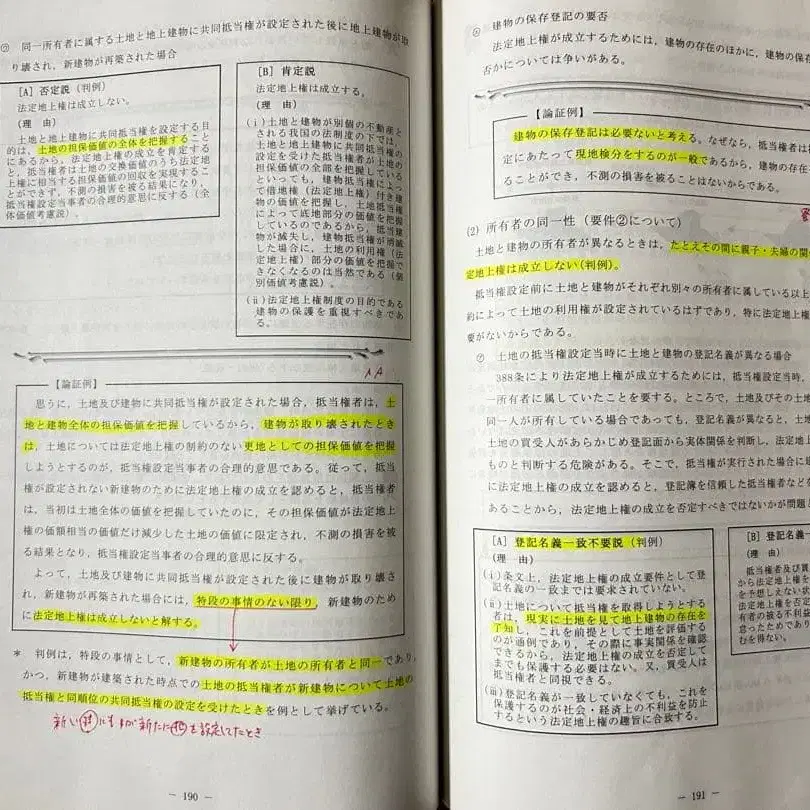 ㋒ 同一所有者に属する土地と地上建物に共同抵当権が設定された後に地上建物が取
り壊され，新建物が再築された場合
［A］否定説（判例）
法定地上権は成立しない。
（理 由）
土地と地上建物に共同抵当権を設定する目
的は，土地の担保価値の全体を把握すること
にあるから，法定地上権の成立を肯定する
と，抵当権者は土地の交換価値のうち法定地
上権に相当する担保価値の回収を実現するこ
とができず，不測の損害を被る結果になり，
抵当権設定当事者の合理的意思に反する（全
体価値考慮説）。
［B］肯定説
法定地上権は成立する。
（理 由）
(ⅰ)土地と建物が別個の不動産と
される我国の法制度の下では，
土地と地上建物に共同抵当権の
設定を受けた抵当権者が土地の
担保価値の全部を把握している
といっても，建物抵当権によっ
て借地権（法定地上権）付き建
物の価値を把握し，土地抵当権
によって底地部分の価値を把握
しているのであるから，抵当建
物が滅失し，建物抵当権が消滅
した場合に，土地の利用権（法
定地上権）部分の価値を把握で
きなくなるのは当然である（個
別価値考慮説）。
(ⅱ)法定地上権制度の目的である
建物の保護を重視すべきであ
る。
【論証例】
思うに，土地及び建物に共同抵当権が設定された場合，抵当権者は，土
地と建物全体の担保価値を把握しているから，建物が取り壊されたとき
は，土地については法定地上権の制約のない更地としての担保価値を把握
しようとするのが，抵当権設定当事者の合理的意思である。従って，抵当
権が設定されない新建物のために法定地上権の成立を認めると，抵当権者
は，当初は土地全体の価値を把握していたのに，その担保価値が法定地上
権の価額相当の価値だけ減少した土地の価値に限定され，不測の損害を被
る結果となり，抵当権設定当事者の合理的意思に反する。
よって，土地及び建物に共同抵当権が設定された後に建物が取り壊さ
れ，新建物が再築された場合には，特段の事情のない限り，新建物のため
に法定地上権は成立しないと解する。
＊ 判例は，特段の事情として，新建物の所有者が土地の所有者と同一であり，
かつ，新建物が建築された時点での土地の抵当権者が新建物について土地の
抵当権と同順位の共同抵当権の設定を受けたときを例として挙げている。
－ 190 －
建物の保存登記の要否
法定地上権が成立するためには，建物の存在のほかに，建物の保存
否かについては争いがある。
【論証例】
建物の保存登記は必要ないと考える。なぜなら，抵当権者は
定にあたって現地検分をするのが一般であるから，建物の存在
ることができ，不測の損害を被ることはないからである。
(2) 所有者の同一性（要件②について）
土地と建物の所有者が異なるときは，たとえその間に親子・夫婦の関
定地上権は成立しない（判例）。
抵当権設定前に土地と建物がそれぞれ別々の所有者に属している以上
約によって土地の利用権が設定されているはずであり，特に法定地上権
要がないからである。
㋐ 土地の抵当権設定当時に土地と建物の登記名義が異なる場合
388条により法定地上権が成立するためには，抵当権設定当時，
一所有者に属していたことを要する。ところで，土地及びその土地
同一人が所有している場合であっても，登記名義が異なると，土地
土地の買受人があらかじめ登記面から実体関係を判断し，法定地上
ものと判断する危険がある。そこで，抵当権が実行された場合に
に法定地上権の成立を認めると，登記簿を信頼した抵当権者など
あることから，法定地上権の成立を否定すべきではないかが問題と
［A］登記名義一致不要説（判例）
（理 由）
(ⅰ)条文上，法定地上権の成立要件として登
記名義の一致までは要求されていない。
(ⅱ)土地について抵当権を取得しようとする
者は，現実に土地を見て地上建物の存在を
了知し，これを前提として土地を評価する
のが通例であり，その際に事実関係を確認
できるから，法定地上権の成立を否定して
までも保護する必要はない。又，買受人は
抵当権者と同視できる。
(ⅲ)登記名義が一致していなくても，これを
保護するのが社会・経済上の不利益を防止
するという法定地上権の趣旨に合致する。
［B］登記名義一
（理 由）
抵当権者及び買
から法定地上権
を予想しえない状
法定地上権を否定
有者の被る不利益
怠ったためであり
むを得ない。
－ 191 －